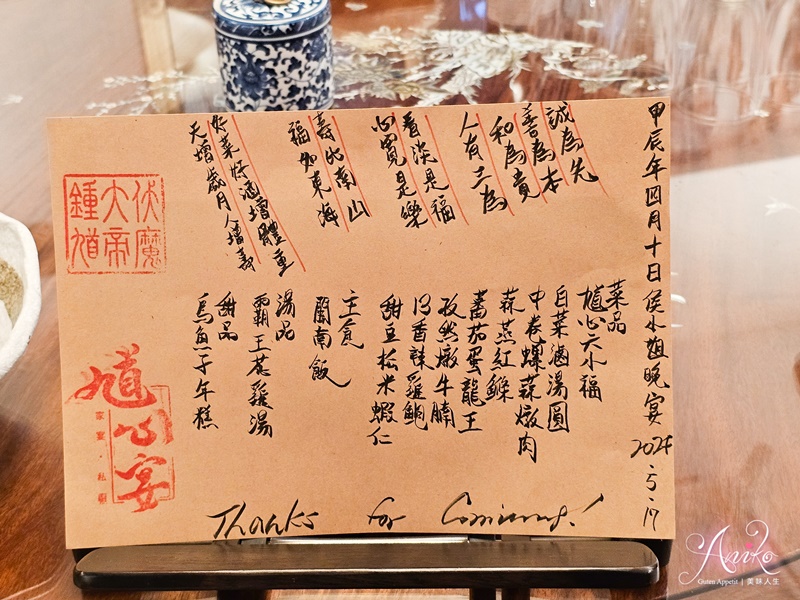 甲辰年四月十日侯小姐晚宴 2024.5.17
誠為先
善為本
和為貴
人有三為
看淡是福
心寬是樂
壽比南山
福如東海
好菜好酒增體重
天增歲月人增壽
菜品
馗公六小福
白菜滷湯圓
中卷螺蒜燉肉
蒜蒸紅鰷
蕃茄蛋龍王
孜然燉牛腩
香辣雞鮑
甜豆松米蝦仁
主食
閩南飯
湯品
霸王花雞湯
甜品
烏魚子年糕
伏魔
大帝
鍾馗
馗公宴
家宴·私廚
Thanks for Coming!
Aniko
Guten Appetit | 美味人生